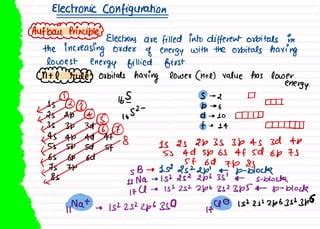 Electronic Configuration
Aufbau Principle Electrons are filled into different orbitals in
the increasing order of energy with the orbitals having
lowest energy filled first
n+l rule orbitals having lower (n+l) value has lower
energy.
1s
2s 2p
3s 3p 3d
4s 4p 4d 4f
5s 5p 5d 5f
6s 6p 6d
7s 7p
8s
1 2 3 4 5 6 7 8
16S
16S2-
s → 2
p → 6
d → 10
f → 14
1s 2s 2p 3s 3p 4s 3d 4p
5s 4d 5p 6s 4f 5d 6p 7s
5f 6d 7p 8s
5B → 1s2 2s2 2p1 ← p-block
11Na → 1s2 2s2 2p6 3s1 ← s-block
17Cl → 1s2 2s2 2p6 3s2 3p5 ← p-block
11Na+ → 1s2 2s2 2p6 3s0
17Cl⊖ → 1s2 2s2 2p6 3s2 3p6